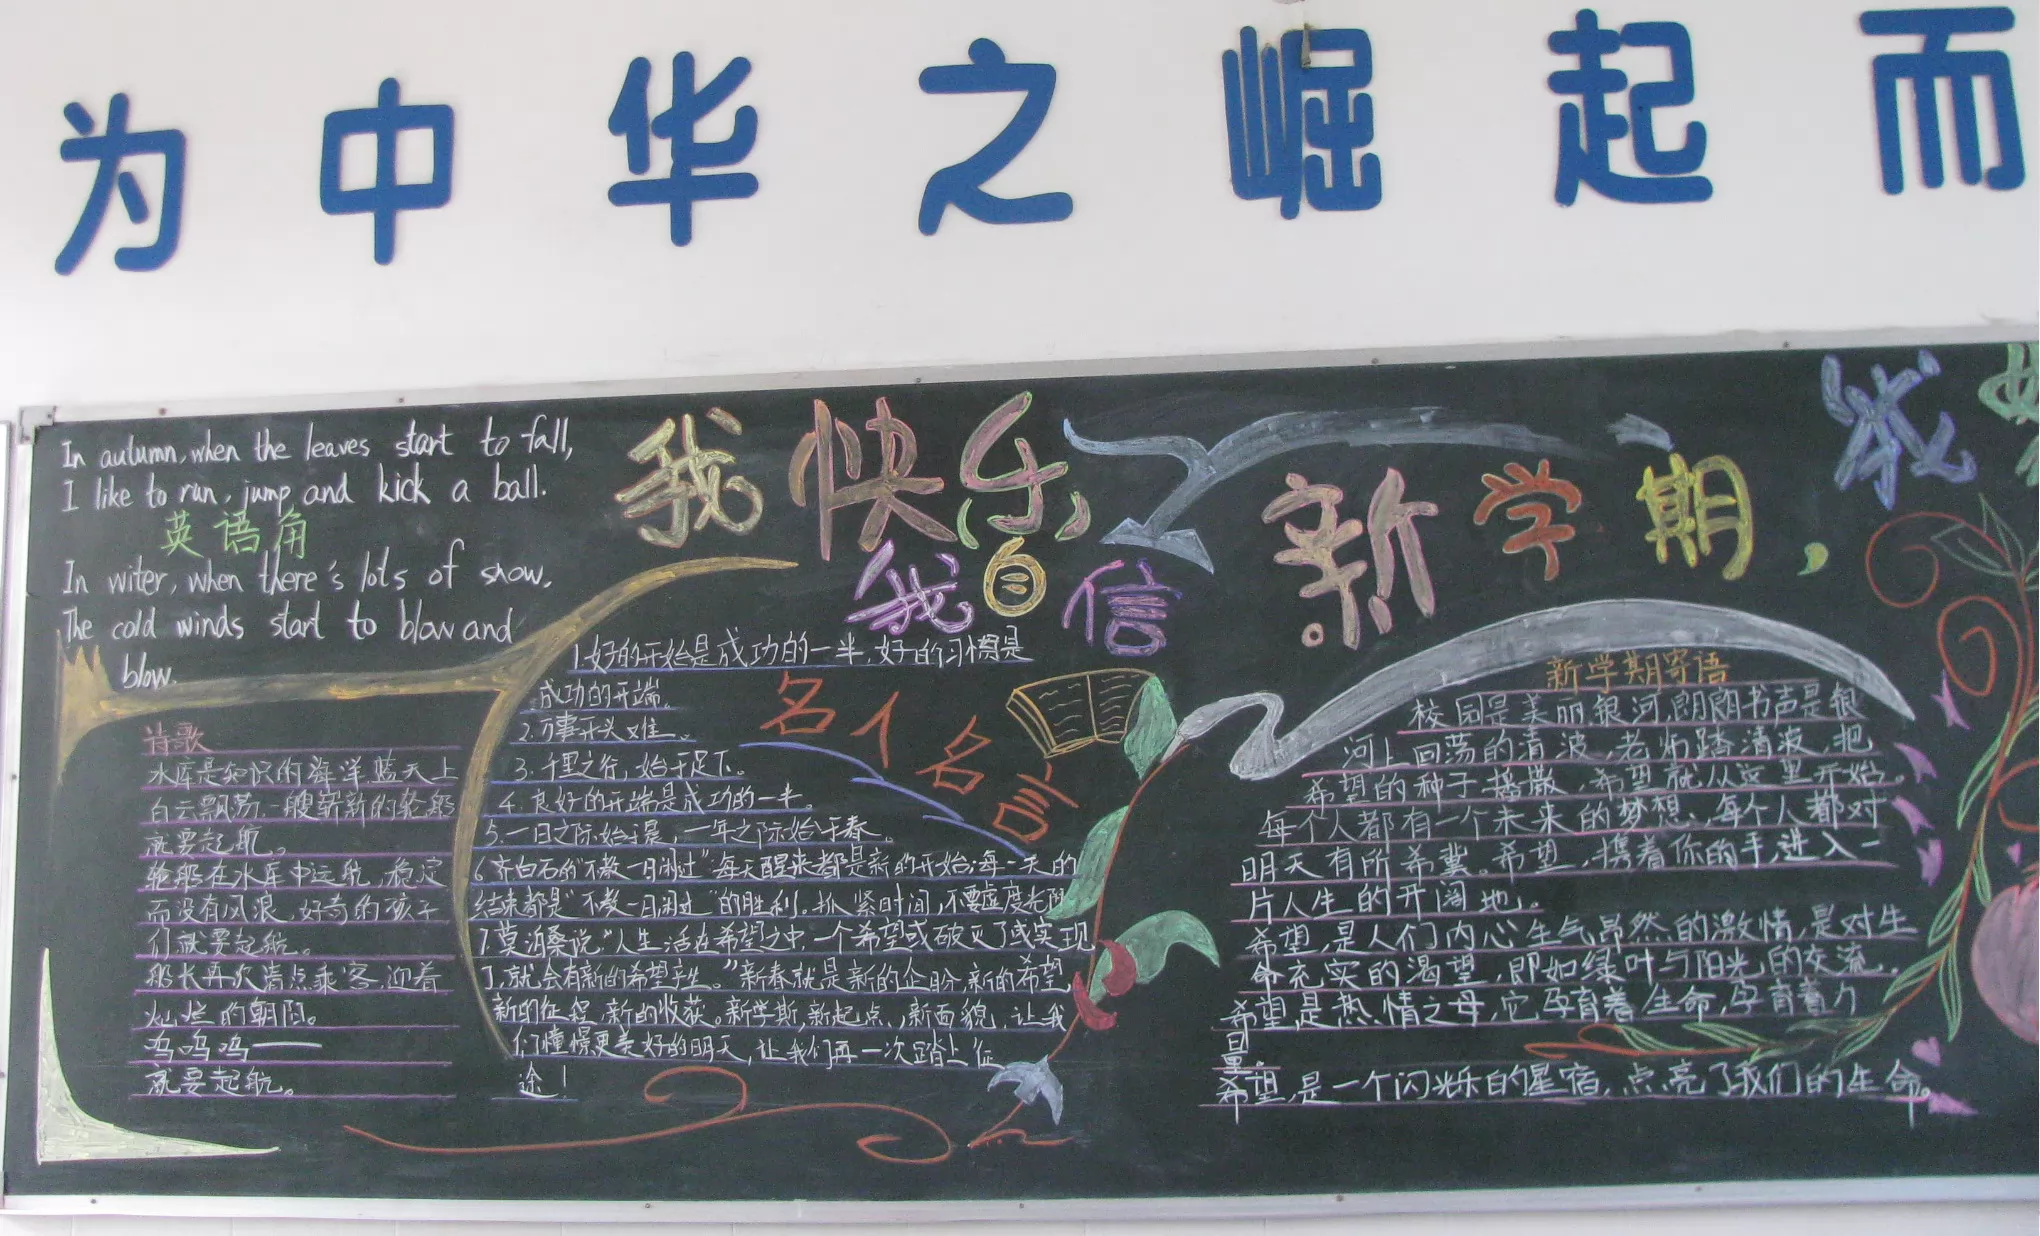 为中华之崛起而
In autumn, when the leaves start to fall,
I like to run, jump and kick a ball.
英语角
In witer, when there's lots of snow.
The cold winds start to blow and
blow.
诗歌
水库是知识的海洋 蓝天上
白云飘荡 一艘崭新的轮船
就要起航。
轮船在水库中远航, 稳定
而没有风浪, 好奇的孩子
们就要起航。
船长再次清点乘客, 迎着
灿烂的朝阳。
呜呜呜——
就要起航。
我快乐,
我自信
1.好的开始是成功的一半,好的习惯是
成功的开端。
2.万事开头难。
3.千里之行,始于足下。
4.良好的开端是成功的一半。
5.一日之际始于晨,一年之际始于春。
6.齐白石的"不教一日闲过"每天醒来都是新的开始;每一天的
结束都是"不教一日闲过"的胜利。抓紧时间,不要虚度光阴
7.莫泊桑说"人生活在希望之中,一个希望或破灭了或实现
了,就会有新的希望产生。"新春就是新的企盼,新的希望,
新的征程,新的收获。新学期,新起点,新面貌,让我
们憧憬更美好的明天,让我们再一次踏上征
途!
名人名言
新学期,我
新学期寄语
校园是美丽银河,朗朗书声是银
河上回荡的清波,老师踏清波,把
希望的种子播撒,希望就从这里开始。
每个人都有一个未来的梦想、每个人都对
明天有所希冀。希望,携着你的手,进入一
片人生的开阔地。
希望,是人们内心生气昂然的激情,是对生
命充实的渴望,即如绿叶与阳光的交流。
希望是热情之母,它孕育着生命,孕育着力
量。
希望,是一个闪烁的星宿,点亮了我们的生命。